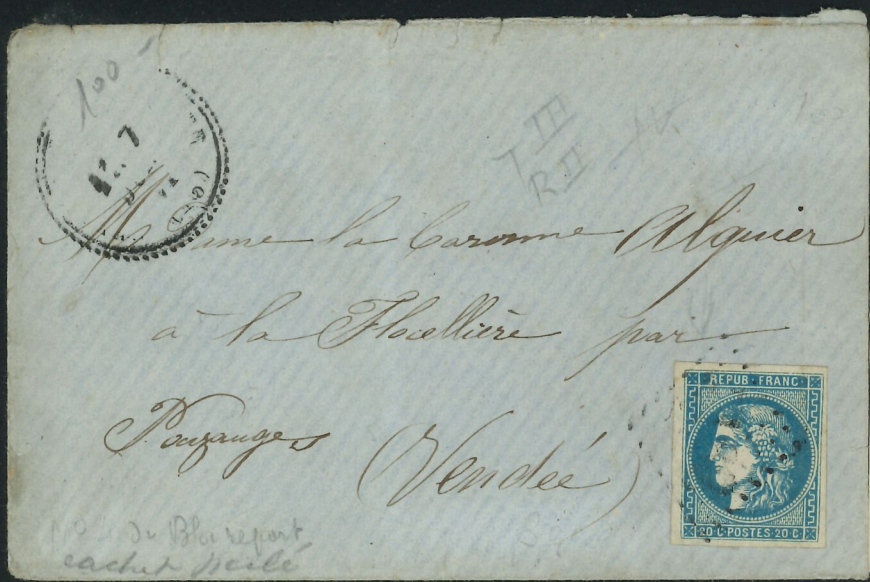 100
7
T III
R II
IV
Madame la Baronne Alquier
à la Flocellière par
Pouzauges
(Vendée)
REPUB. FRANC
20 C. POSTES. 20 C.
du Bloc report
cachet perlé